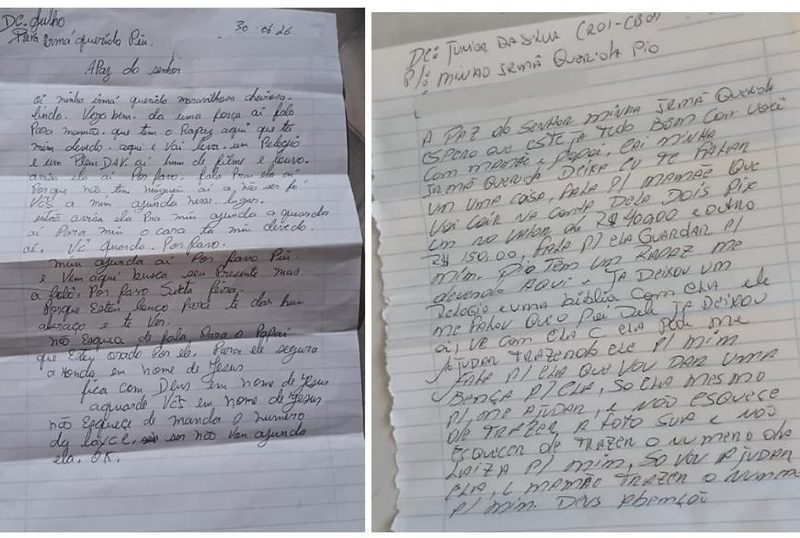 De. Julho 30 06 26
Para Irmá querida Piu.
A Paz do senhor
oi minha irmá querida maravilhosa deusosa.
lindo. Vejo bem. da uma força aí fala
Para mamãe. que tem o Rapaz aqui que ta
mim devedo. aqui e Vai leva um Relogio
e um Pien DAV. aí hum de filme e louvo.
avisa ela aí Por favo. fala Pra ela aí
Porque não tem ninguem aí a não ser só
VCS a mim ajunda nesse lugar.
então avisa ela Pra min ajunda a guarda
aí Para mim o cara ta mim devedo.
aí. VC Guarda. Por favo.
mim ajunda aí Por favo Piu.
e Vem aqui busca seu Presente mas
a foto. Por favo Sexta feira.
Porque Estou louco Para te dar hum
abraço e te Ver.
não Esqueça de fala Para o Papai
que Estou orado Por ele. Para ele segura
a Honda em nome de Jesus
fica com Deus Em nome de Jesus
aguarde VCS em nome de Jesus
não Esquece de manda o numero
da ser não Vou ajunda
ela. OK.
De: Junior Da Silva (R01-C801
P/: Minha Irmã Querida Pio
A Paz do Senhor minha irmã querida
espero que esteja tudo bem com você
com mamãe e papai. Ei minha
irmã querida deixe eu te falar
um uma coisa, fala p/ mamãe que
vai cair na conta dela dois pix
um no valor de R$ 400,00 e outro
R$ 150,00, fala p/ ela guardar p/
mim. Pio tem um rapaz me
devendo aqui. Ja deixou um
relogio e uma biblia com ela ele
me falou que o pai dele ja deixou
ai, ve com ela c ela pode me
ajudar trazendo ele p/ mim
fala p/ ela que vou dar uma
bença p/ ela, so ela mesmo
p/ me ajudar, e não esquece
de trazer a foto sua e não
esquecer de trazer o numero da
Laiza p/ mim, so vou ajudar
ela, c mamãe trazer o numero
p/ mim. Deus abemção